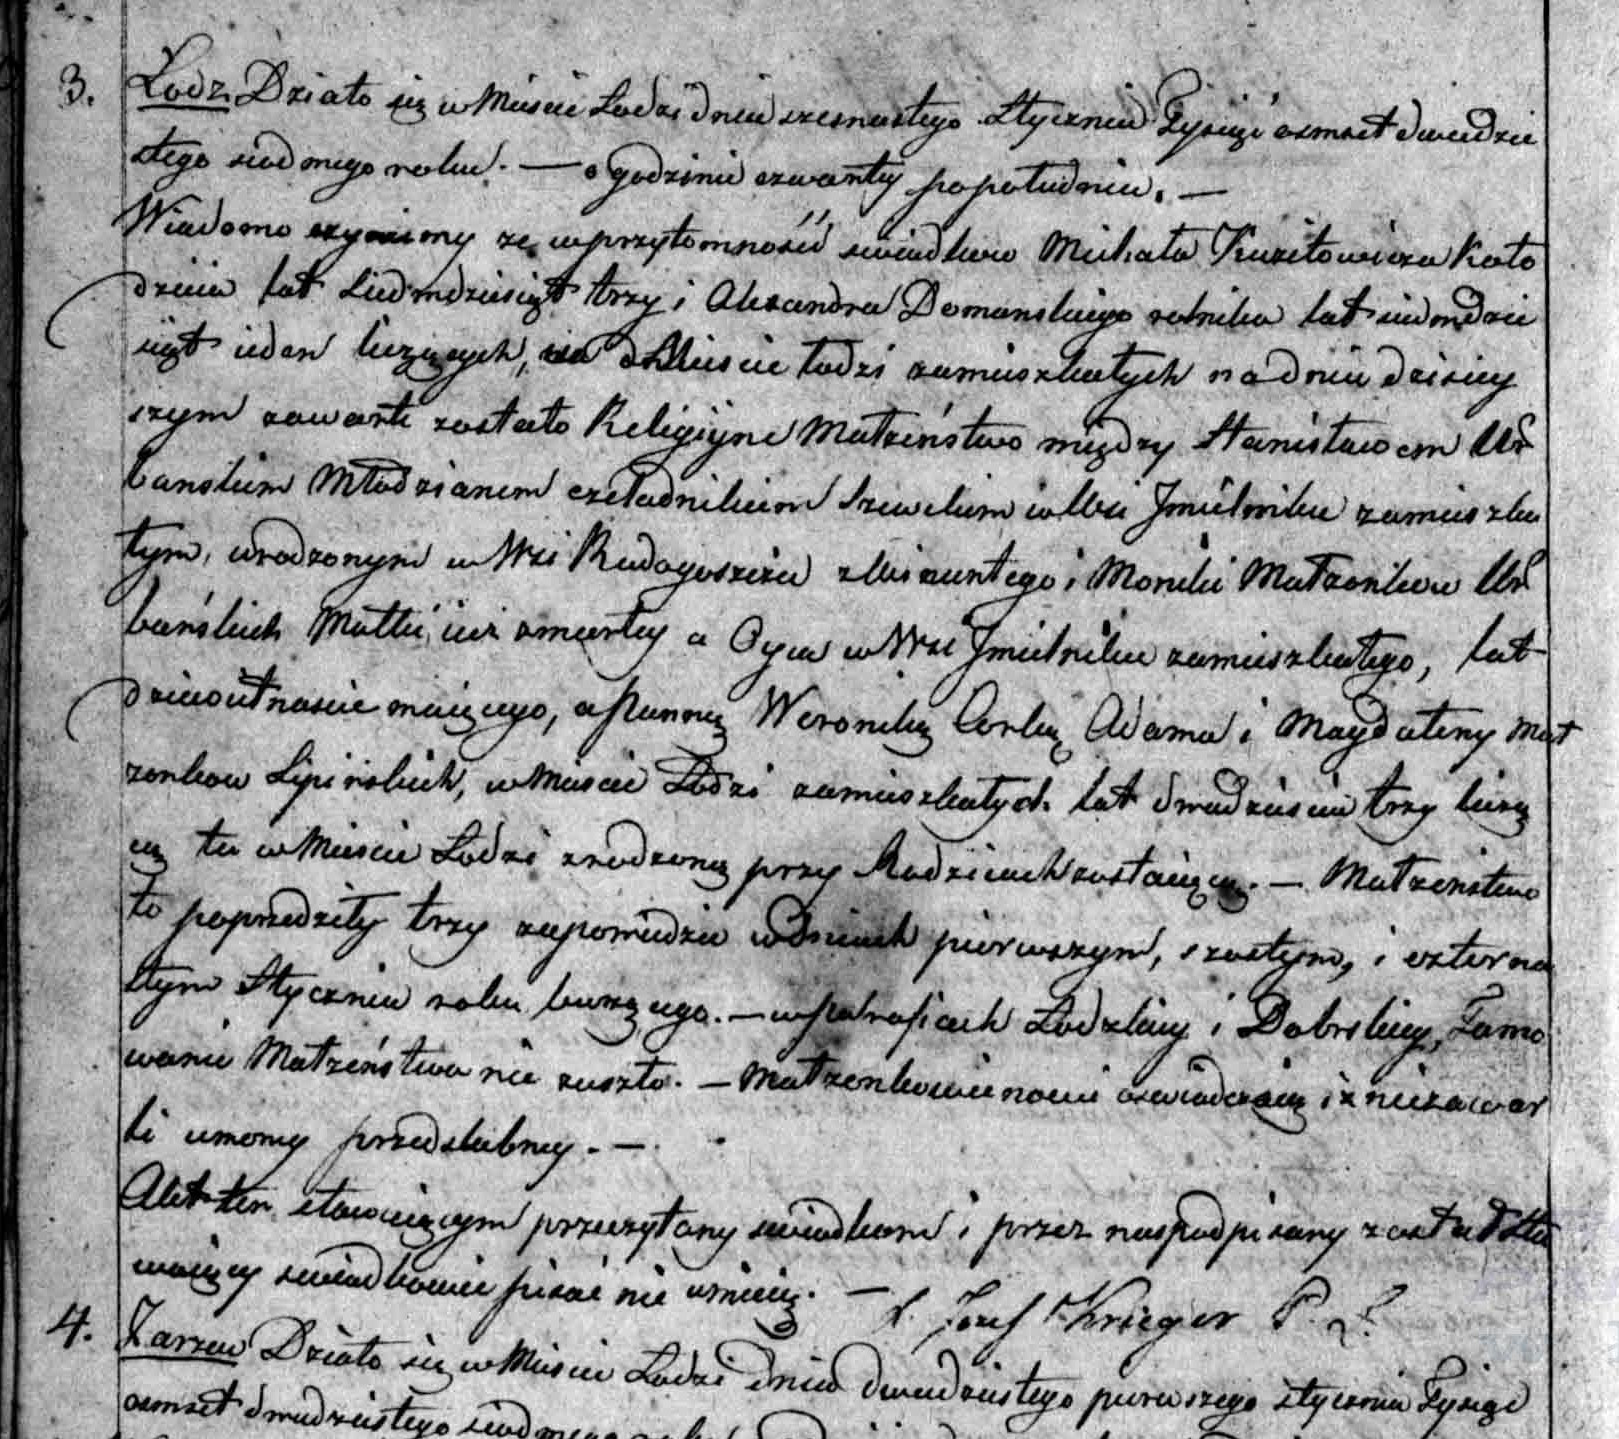 3. Łodz. Działo się w Mieście Łodzi dnia szesnastego Stycznia Tysiąc osmset dwudzie
stego siodmego roku. — o godzinie czwarty popołudniu. —
Wiadomo czyniemy że w przytomności swiadkow Michała Kuziłowicza Koło
dzieia lat siedmdziesiąt trzy i Alexandra Domanskiego rolnika lat siedmdzie
siąt ieden liczących, w Mieście Łodzi zamieszkałych na dniu dzisiey
szym zawarte zostało Religijne Małżeństwo między Stanisławem Ur
banskim Młodzianem czeladnikiem Szewckim w Wsi Jmielniku zamieszka
łym, urodzonym w Wsi Radogoszczu z Wincentego i Moniki Małżonkow Ur
bańskich Matki iuż zmarłey a Oyca w Wsi Jmielniku zamieszkałego, lat
dziewiętnascie maiącego, a Panną Weroniką Corką Adama i Magdaleny Mał
żonkow Lipińskich, w Miescie Łodzi zamieszkałych lat dwadziescia trzy liczą
cą tu w Miescie Łodzi zrodzoną przy Rodzicach zostaiącą. — Małżeństwo
to poprzedziły trzy zapowiedzie w dniach pierwszym, szostym, i czterna
stym Stycznia roku bieżącego. — w Parafiach Łodzkiey i Dobrskiey, Tamo
wanie Małżeństwa nie zaszło. — Małżonkowie nowi oswiadczaią iż nie zawar
li umowy przedslubney. —
Akt ten stawaiącym przeczytany swiadkom i przez nas podpisany został Sta
waiący swiadkowie pisać nie umieią. — X. Jozef Krieger P. Ł.
4. Zarzew Działo się w Mieście Łodzi dnia dwudziestego pierwszego stycznia Tysiąc
osmset dwudziestego siodmego roku